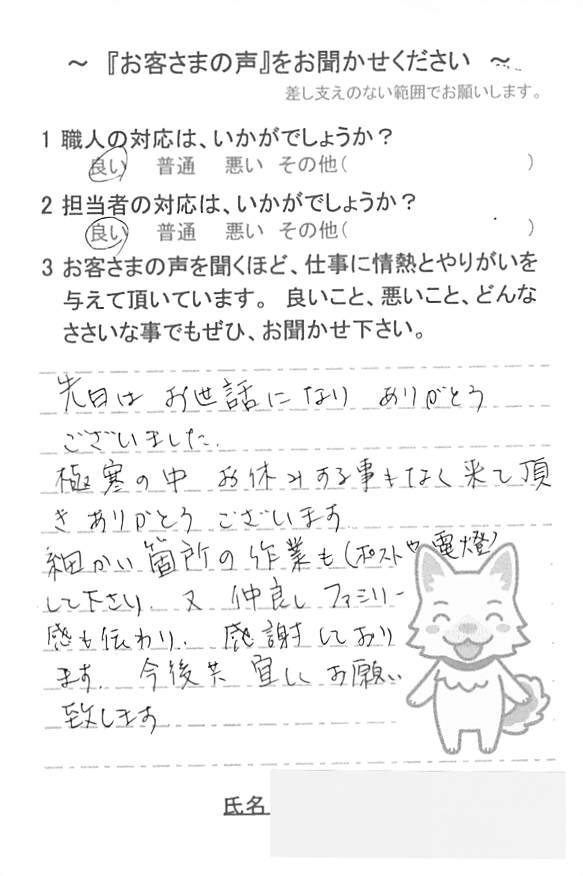 ～ 『お客さまの声』をお聞かせください ～
差し支えのない範囲でお願いします。
1 職人の対応は、いかがでしょうか？
良い 普通 悪い その他( )
2 担当者の対応は、いかがでしょうか？
良い 普通 悪い その他( )
3 お客さまの声を聞くほど、仕事に情熱とやりがいを
与えて頂いています。 良いこと、悪いこと、どんな
ささいな事でもぜひ、お聞かせ下さい。
先日は お世話になり ありがとう
ございました.
極寒の中 お休みする事もなく来て頂
き ありがとう ございます
細かい箇所の作業も(ポストや電燈)
して下さり. 又 仲良し ファミリー
感も伝わり. 感謝しており
ます. 今後共 宜しくお願い
致します
氏名